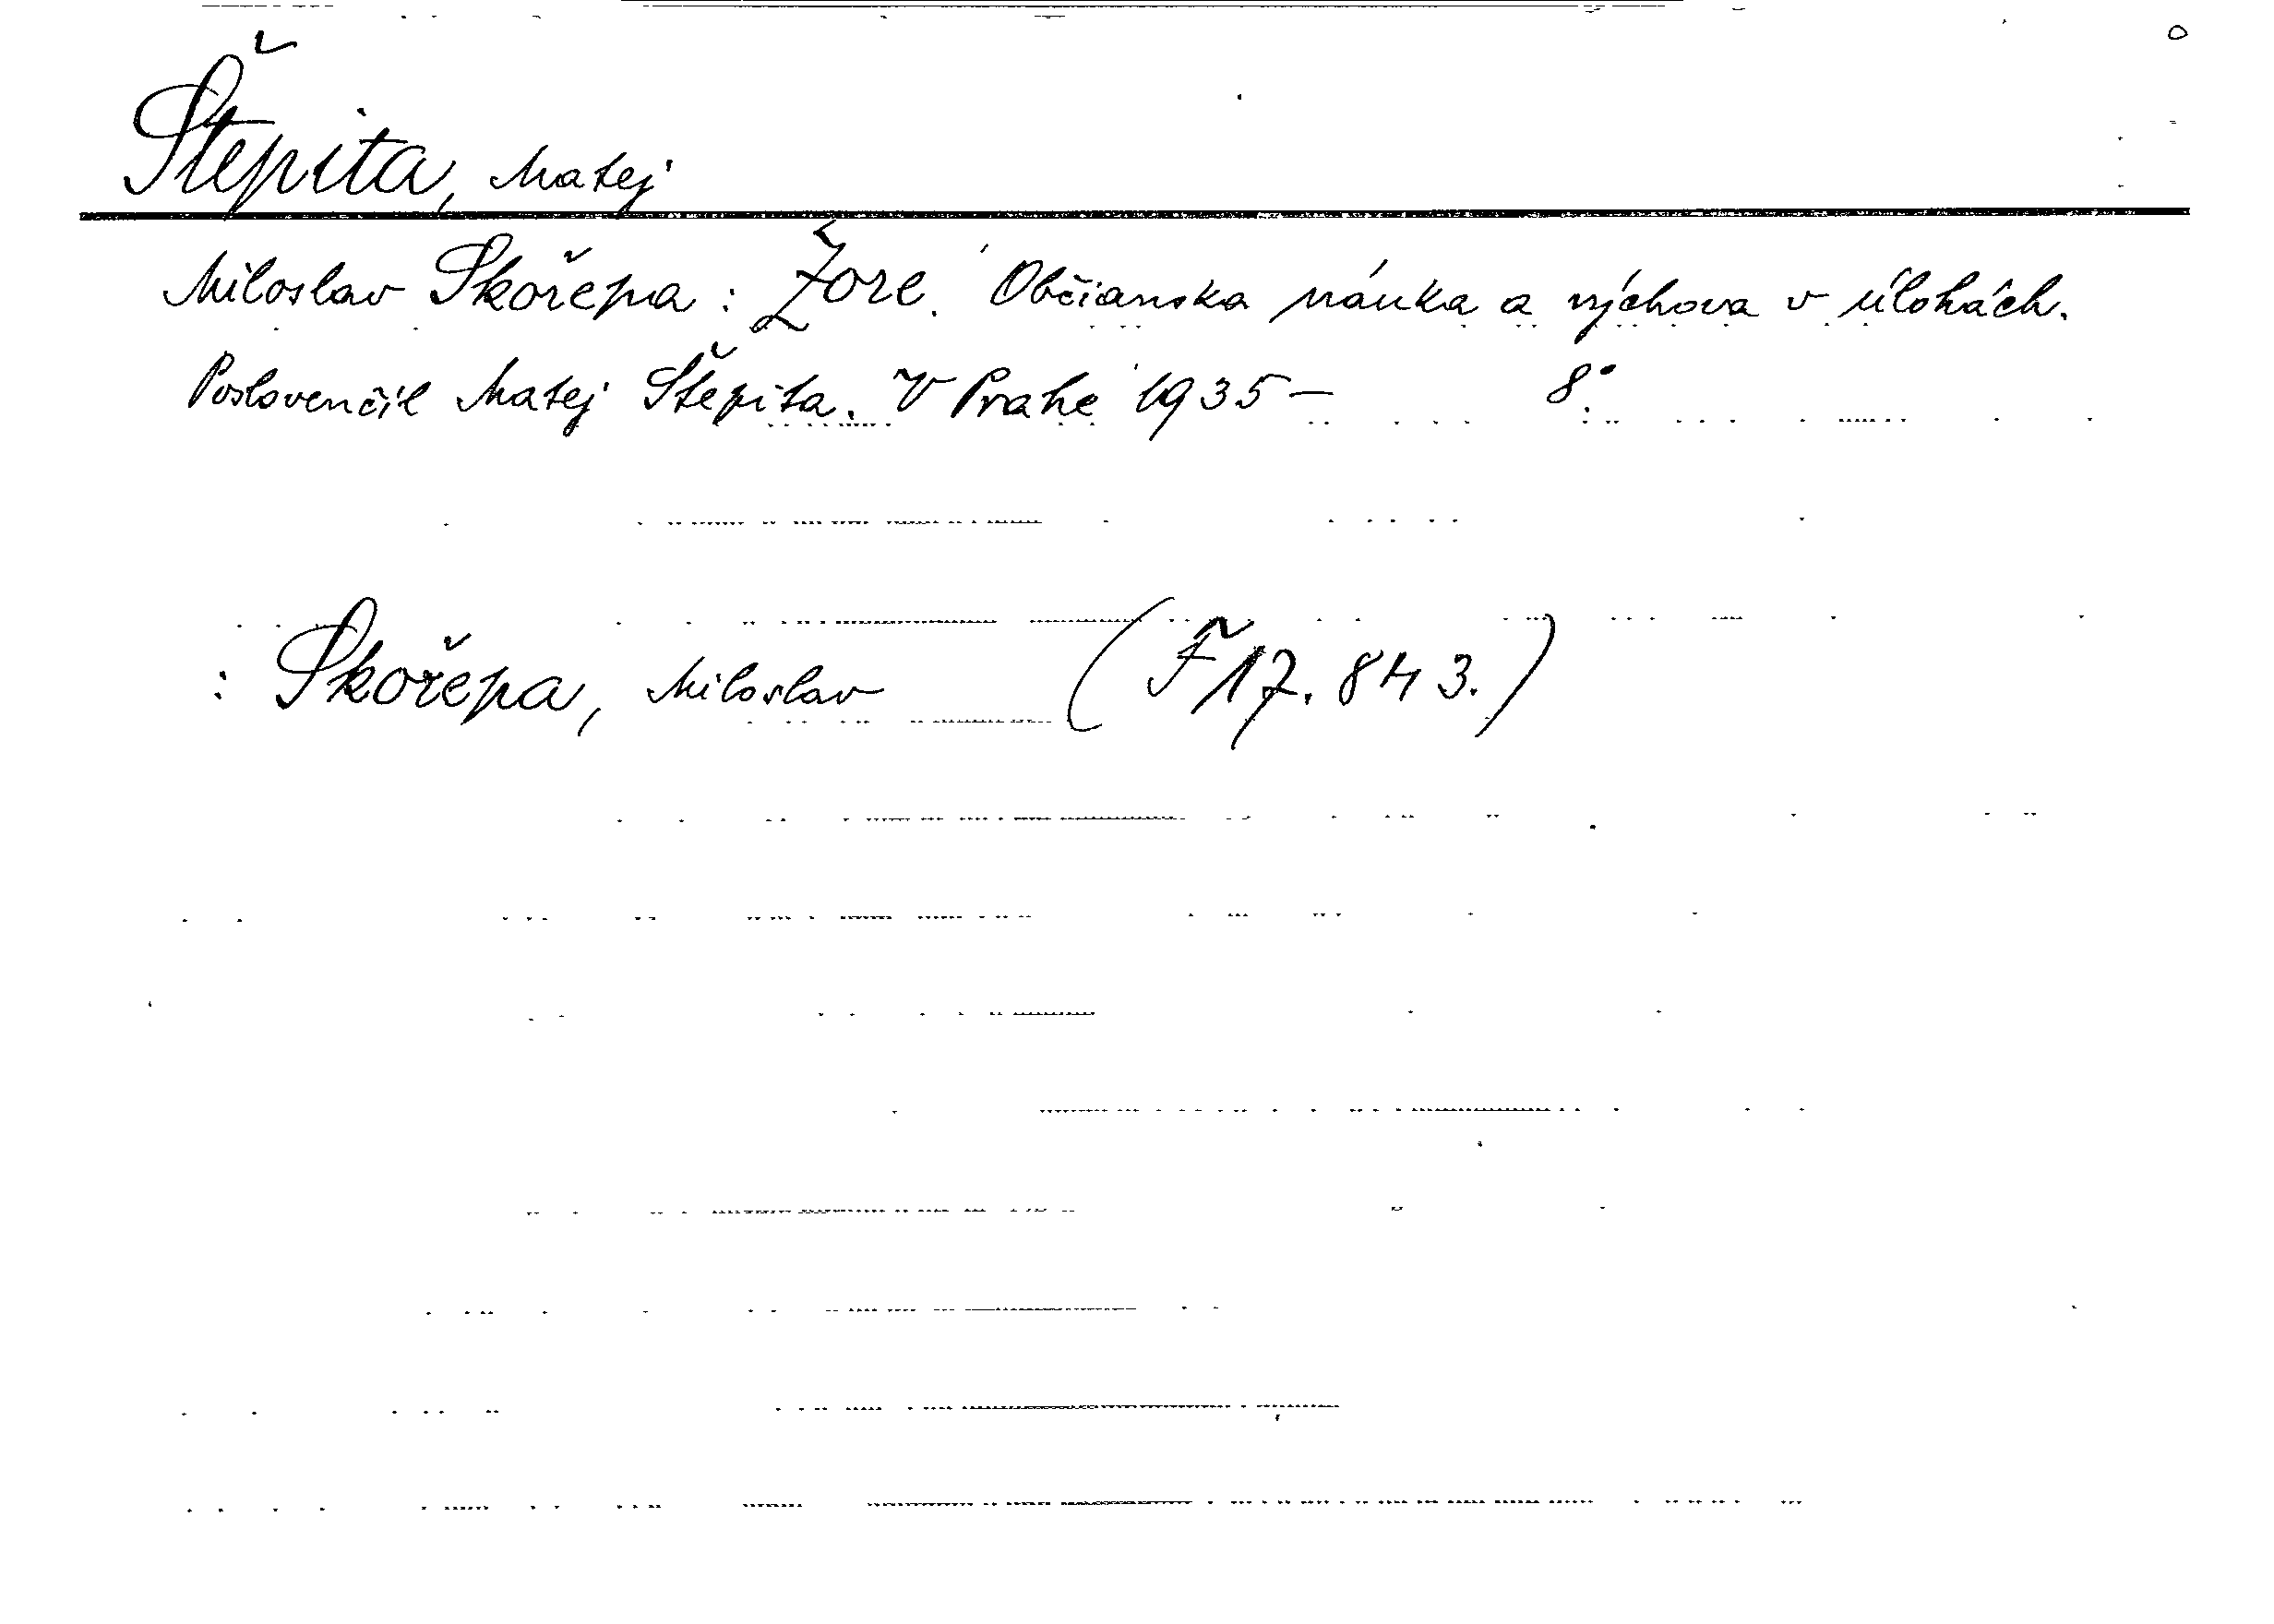 Štěpita, Matej
Miloslav Skořepa: Zore. Občianska náuka a výchova v úlohách.
Poslovenčil Matej Štepita. V Prahe 1935— 8°.
: Skořepa, Miloslav (F 17.843.)